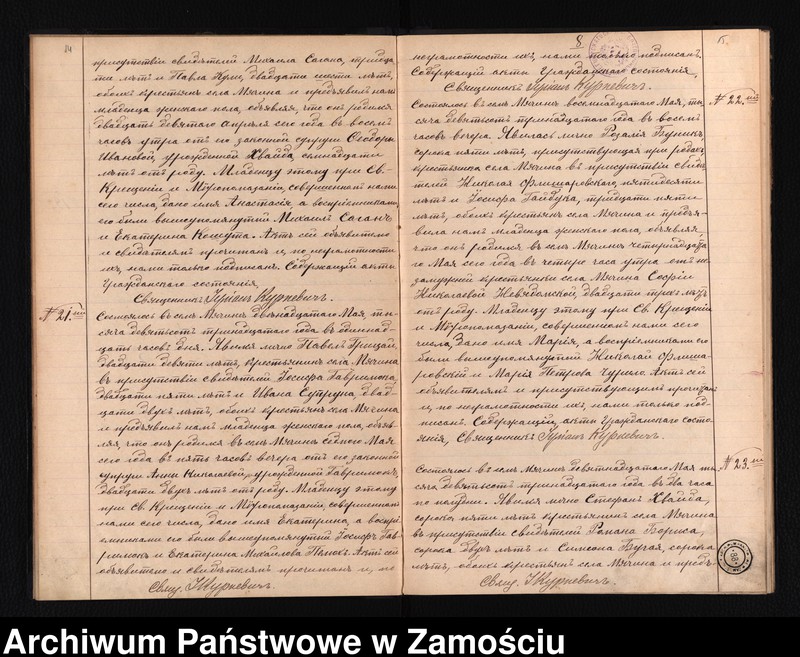 14
присутствіи свидѣтелей Михаила Сагана, тридца-
ти лѣтъ и Павла двадцати шести лѣтъ,
обоихъ крестьянъ села Мячина и предъявилъ намъ
младенца женскаго пола, объявляя, что онъ родился
двадцать девятаго Апрѣля сего года въ восемь
часовъ утра отъ его законной супруги Ѳеодоры
Ивановой, урожденной Хвайда, семнадцати
лѣтъ отъ роду. Младенцу этому при Св.
Крещеніи и Мѵропомазаніи, совершенномъ нами
сего числа, дано имя Анастасія, а воспріемниками
его были вышеупомянутый Михаилъ Саганъ
и Екатерина Кошута. Актъ сей объявителю
и свидѣтелямъ прочитанъ и, по неграмотности
ихъ, нами только подписанъ. Содержащій акты
Гражданскаго состоянія,
Священникъ Іуліанъ Куркевичъ.
№ 21.
Состоялось въ селѣ Мячинѣ двѣнадцатаго Мая, ты-
сяча девятьсотъ тринадцатаго года въ одиннад-
цать часовъ дня. Явился лично Павелъ Грицай,
двадцати девяти лѣтъ, крестьянинъ села Мячина
въ присутствіи свидѣтелей Іосифа Гаврилюка,
двадцати пяти лѣтъ и Ивана Супруна, двад-
цати двухъ лѣтъ, обоихъ крестьянъ села Мячина
и предъявилъ намъ младенца женскаго пола, объяв-
ляя, что онъ родился въ селѣ Мячинѣ седьмого Мая
сего года въ пять часовъ вечера отъ его законной
супруги Анны Николаевой, урожденной Гаврилюкъ,
двадцати двухъ лѣтъ отъ роду. Младенцу этому
при Св. Крещеніи и Мѵропомазаніи, совершенномъ
нами сего числа, дано имя Екатерина, а воспрі-
емниками его были вышеупомянутый Іосифъ Гав-
рилюкъ и Екатерина Михайлова Актъ сей
объявителю и свидѣтелямъ прочитанъ и, по
Свящ. І Куркевичъ.
8
15.
неграмотности ихъ, нами только подписанъ.
Содержащій акты Гражданскаго состоянія,
Священникъ Іуліанъ Куркевичъ.
№ 22.
Состоялось въ селѣ Мячинѣ восемнадцатаго Мая, ты-
сяча девятьсотъ тринадцатаго года въ восемь
часовъ вечера. Явилась лично Розалія
сорока пяти лѣтъ, присутствующая при родахъ
крестьянка села Мячина въ присутствіи свидѣ-
телей Николая пятидесяти
лѣтъ и Іосифа Гайдука, тридцати пяти
лѣтъ, обоихъ крестьянъ села Мячина и предъя-
вила намъ младенца женскаго пола, объявляя,
что онъ родился въ селѣ Мячинѣ четырнадцата-
го Мая сего года въ четыре часа утра отъ не-
замужней крестьянки села Мячина Софіи
Николаевой двадцати трехъ лѣтъ
отъ роду. Младенцу этому при Св. Крещеніи
и Мѵропомазаніи, совершенномъ нами сего
числа, дано имя Марія, а воспріемниками его
были вышеупомянутый Николай
и Марія Петрова Чурило. Актъ сей
объявительницѣ и присутствующимъ прочитанъ
и, по неграмотности ихъ, нами только под-
писанъ. Содержащій акты Гражданскаго состо-
янія, Священникъ Іуліанъ Куркевичъ.
№ 23.
Состоялось въ селѣ Мячинѣ девятнадцатаго Мая ты-
сяча девятьсотъ тринадцатаго года въ два часа
по полудни. Явился лично Стефанъ Хвайда,
сорока пяти лѣтъ крестьянинъ села Мячина
въ присутствіи свидѣтелей Романа Бориса,
сорока двухъ лѣтъ и Симеона Бугая, сорока
лѣтъ, обоихъ крестьянъ села Мячина и предъ-
Свящ. І Куркевичъ.
Archiwum Państwowe w Zamościu